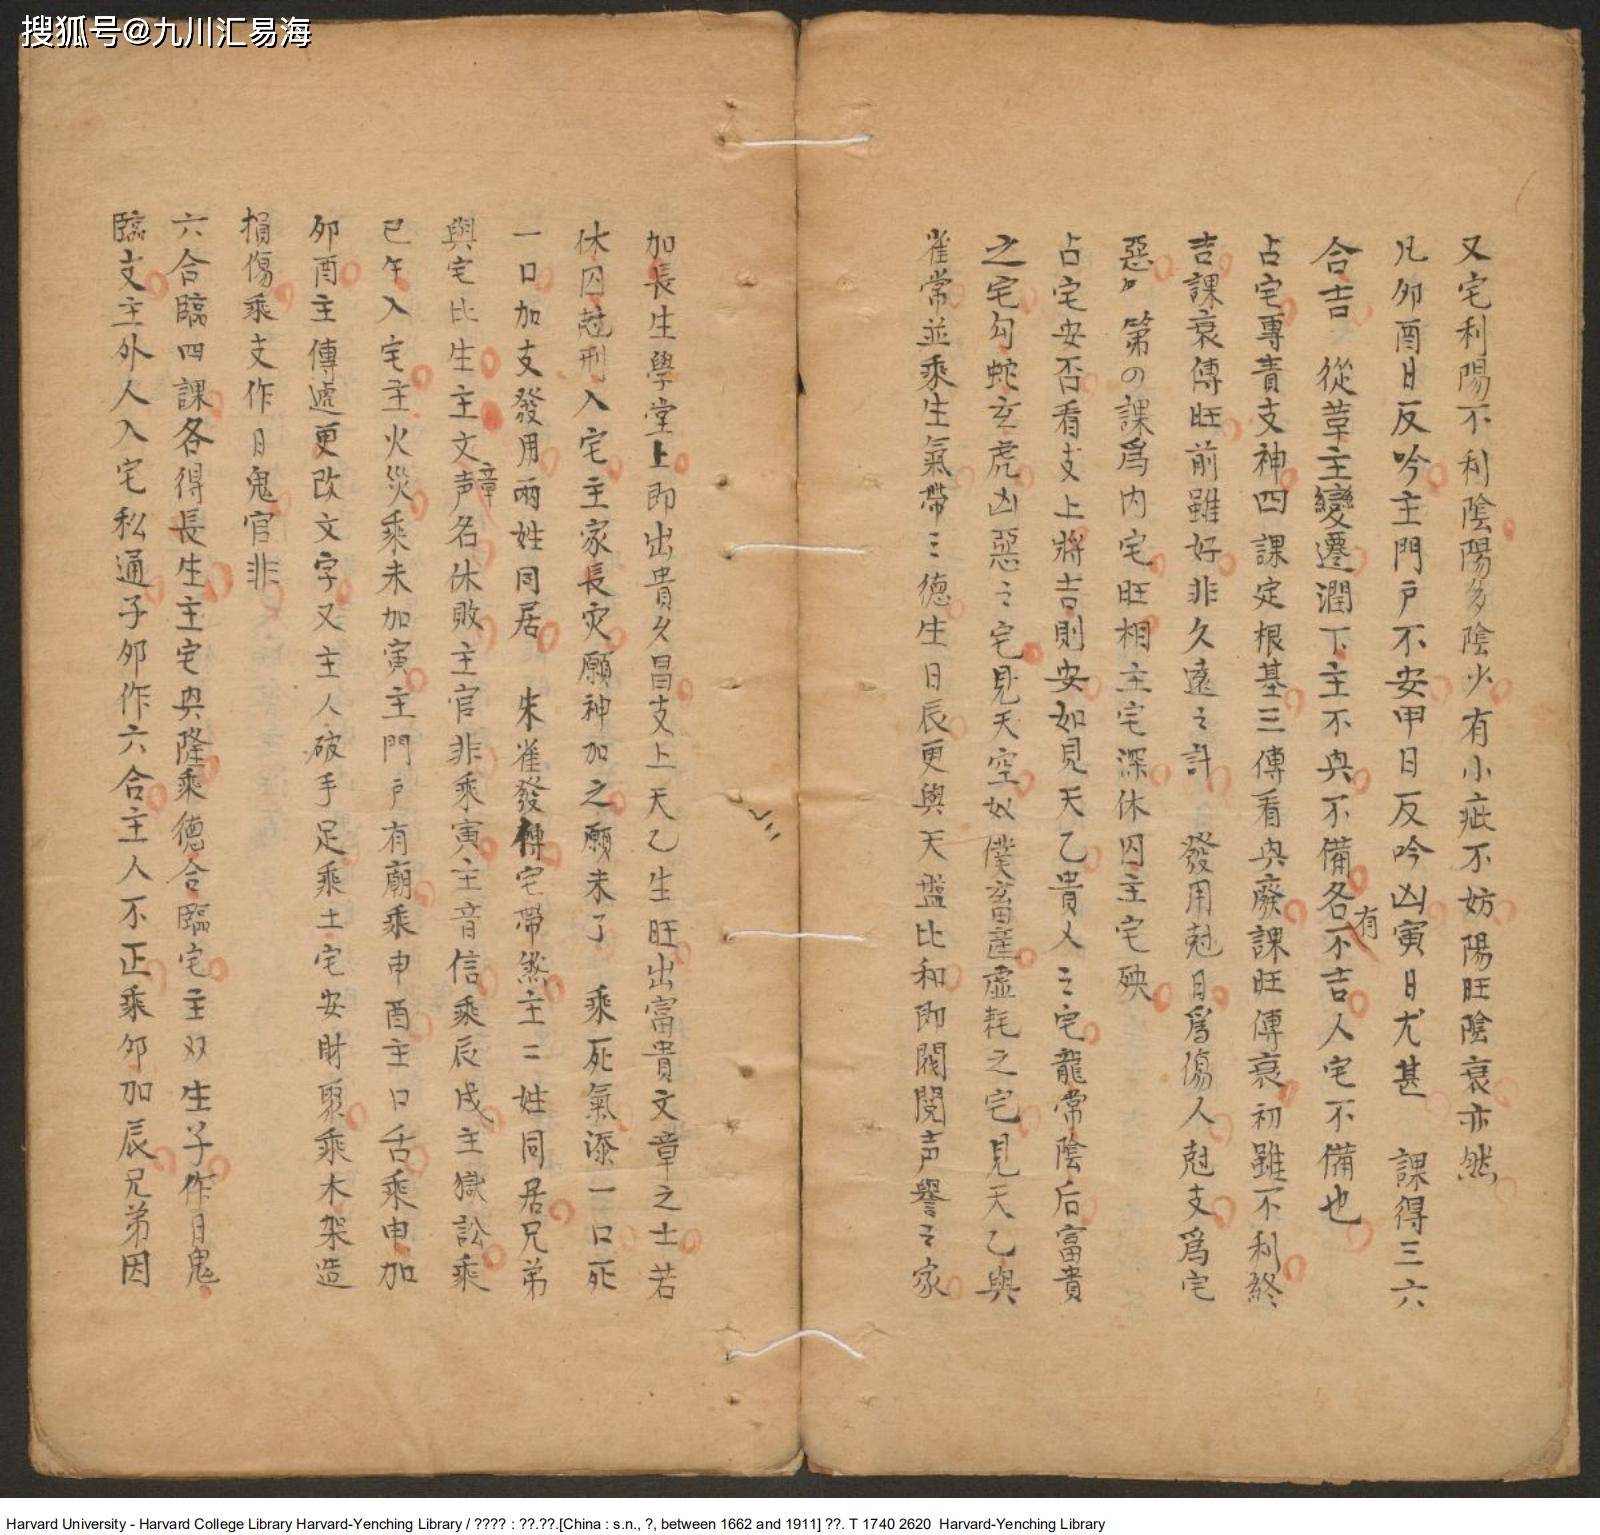 搜狐号@九川汇易海
又宅利陽不利陰陽多陰火有小疵不妨陽旺陰衰亦然
凡夘酉日反吟主門戶不安甲日反吟凶寅日尤甚 課得三六
合吉 從革主變遷潤下主不央不備各有不吉人宅不備也
占宅專責支神四課定根基三傳看央廢課旺傳衰初雖不利終
吉課衰傳旺前雖好非久遠之計 發用尅日爲傷人尅支爲宅
惡 第の課爲内宅旺相主宅深休囚主宅殃
占宅安否看支上將吉則安如見天乙貴人之宅龍常陰后富貴
之宅勾蛇玄虎凶惡之宅見天空奴僕畜産虛耗之宅見天乙與
雀常並乘生氣帶三德生日辰更與天盤比和即閥閱声譽之家
加長生學堂上即出貴久昌支上天乙生旺出富貴文章之士若
休囚尅刑入宅主家長灾願神加之願未了 乘死氣添一口死
一口加支發用兩姓同居 朱雀發傳宅帶煞主二姓同居兄弟
與宅比生主文章声名休敗主官非乘寅主音信乘辰戌主獄訟乘
已午入宅主火災乘未加寅主門戶有廟乘申酉主口舌乘申加
夘酉主傳遞更改文字又主人破手足乘土宅安財聚乘木架造
損傷乘支作日鬼官非
六合臨四課各得長生主宅央隆乘德合臨宅主双生子作日鬼
臨支主外人入宅私通子夘作六合主人不正乘夘加辰兄弟因
Harvard University - Harvard College Library Harvard-Yenching Library / ???? : ??.??.[China : s.n., ?, between 1662 and 1911] ??. T 1740 2620 Harvard-Yenching Library